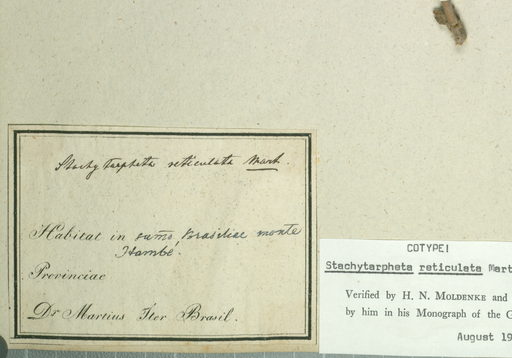 Stachytarpheta reticulata Mart.
Habitat in sumo Brasiliae monte
Itambé.
Provinciae
Dr Martius Iter Brasil.
COTYPE!
Stachytarpheta reticulata Mart
Verified by H. N. MOLDENKE and
by him in his Monograph of the G
August 19